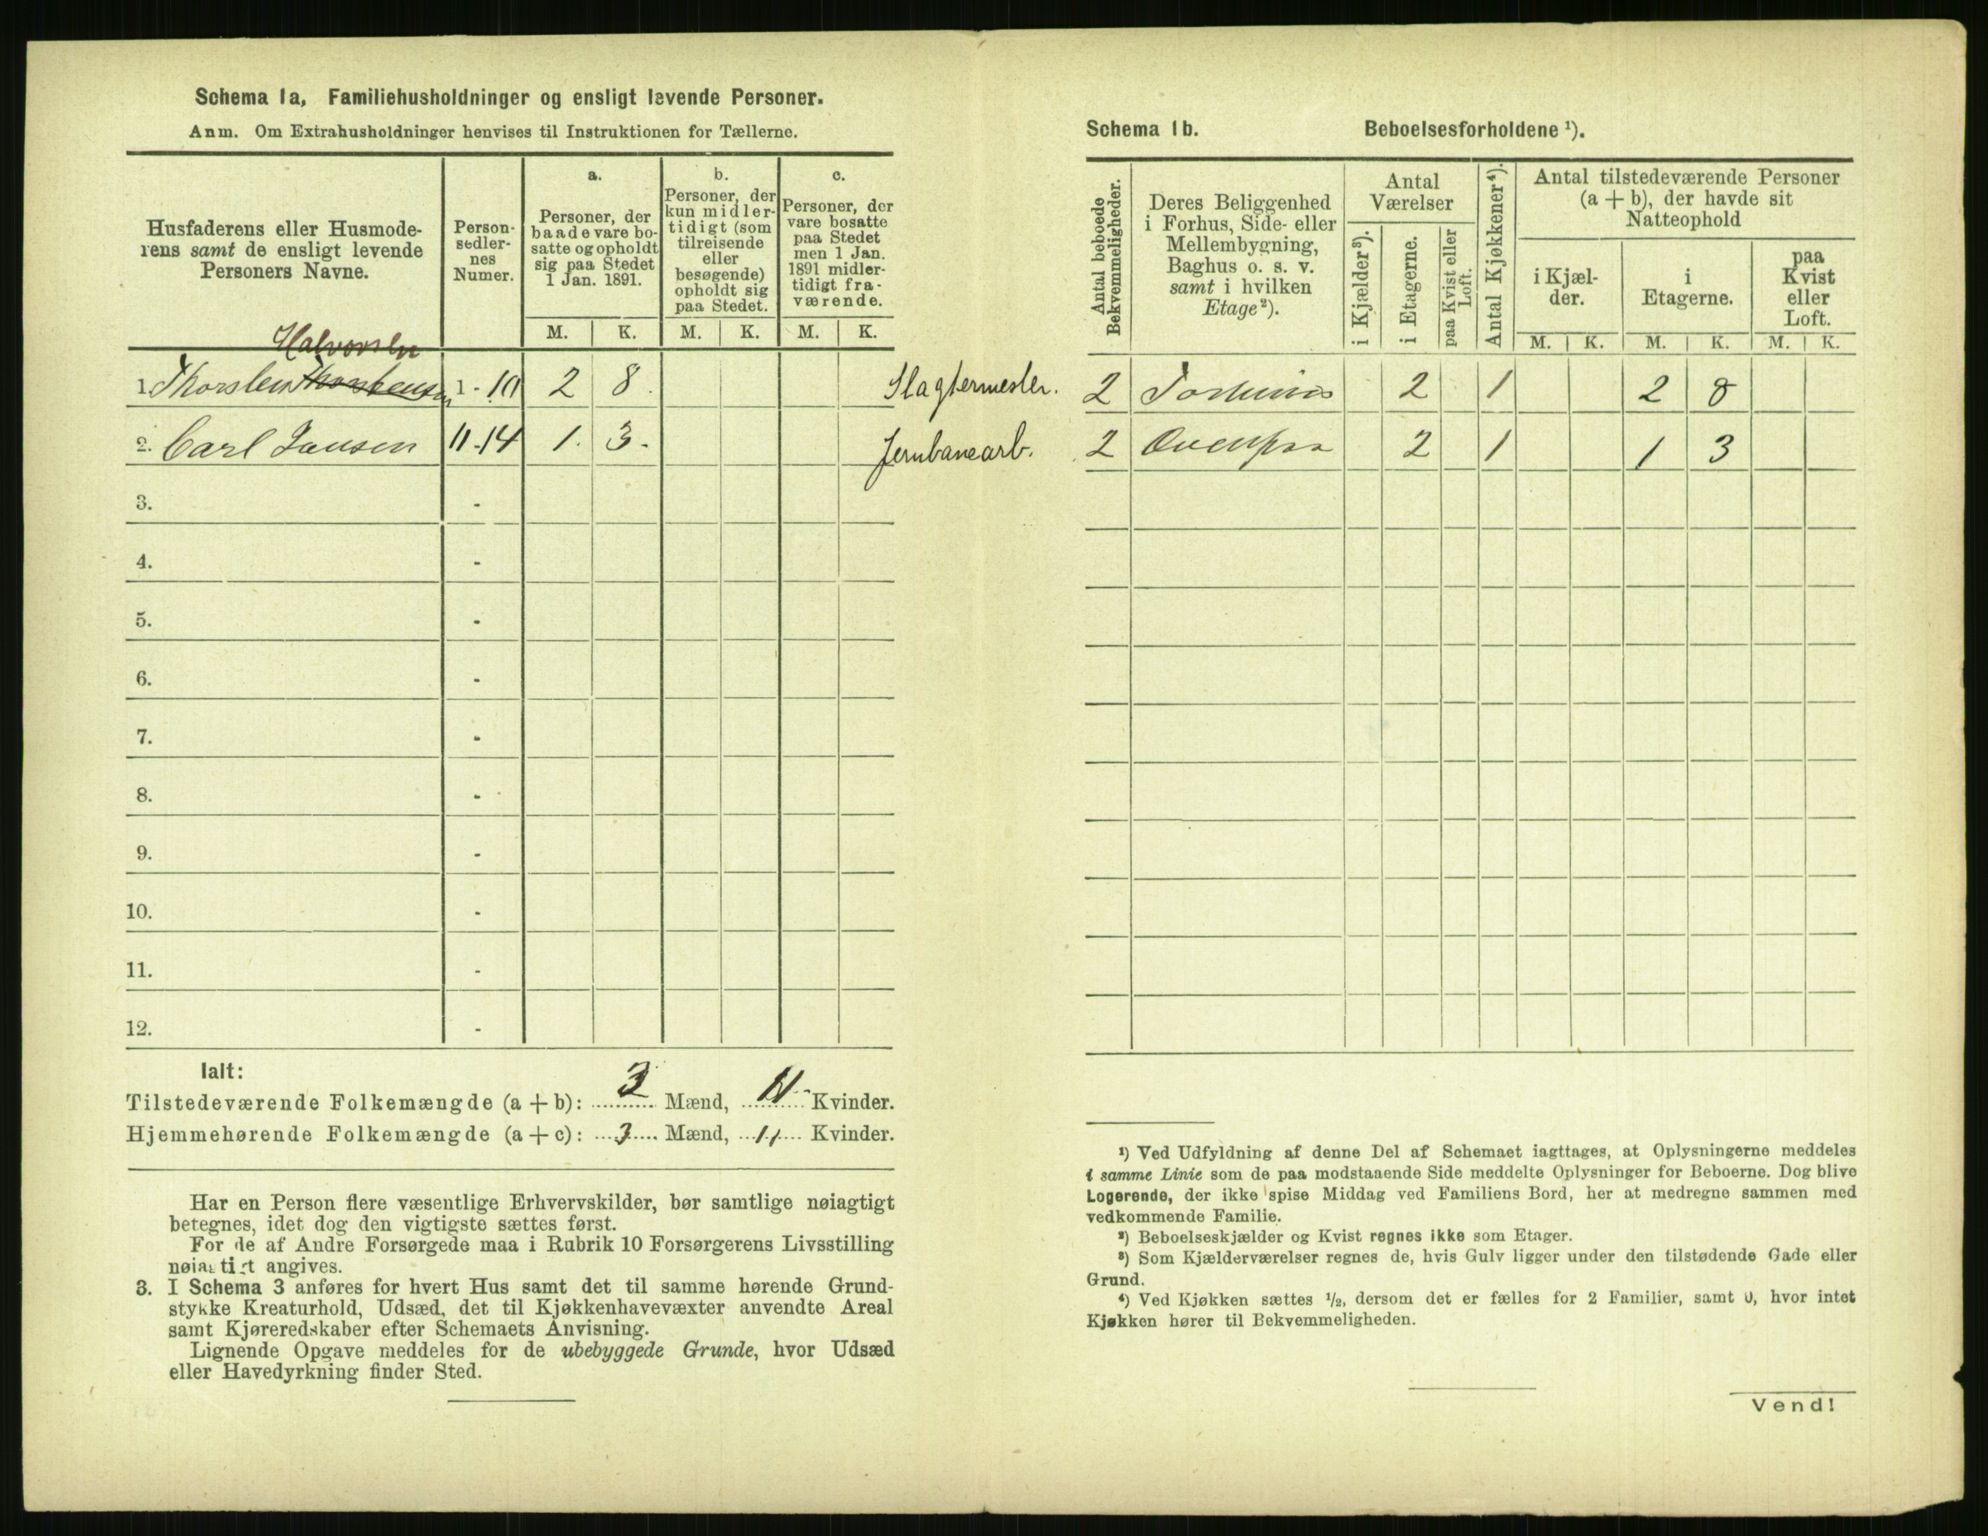 Schema 1a, Familiehusholdninger og ensligt levende Personer.
Anm. Om Extrahusholdninger henvises til Instruktionen for Tællerne.
Husfaderens eller Husmode-
rens samt de ensligt levende
Personers Navne.
Person-
sedler-
nes
Numer.
a.
Personer, der
baade vare bo-
satte og opholdt
sig paa Stedet
1 Jan. 1891.
b.
Personer, der
kun midler-
tidigt (som
tilreisende
eller
besøgende)
opholdt sig
paa Stedet.
c.
Personer, der
vare bosatte
paa Stedet
men 1 Jan.
1891 midler-
tidigt fra-
værende.
M. K. M. K. M. K.
Halvorsen
1. Thorsten Thorstensen 1 - 10 2 8 Slagtermester.
2. Carl Jansen 11 - 14 1. 3 - Jernbanearb.
3. -
4. -
5. -
6. -
7. -
8. -
9. -
10. -
11. -
12. -
Ialt:
Tilstedeværende Folkemængde (a + b): 3 Mænd, 11 Kvinder.
Hjemmehørende Folkemængde (a + c): 3 Mænd, 11 Kvinder.
Har en Person flere væsentlige Erhvervskilder, bør samtlige nøiagtigt
betegnes, idet dog den vigtigste sættes først.
For de af Andre Forsørgede maa i Rubrik 10 Forsørgerens Livsstilling
nøiagtigt angives.
3. I Schema 3 anføres for hvert Hus samt det til samme hørende Grund-
stykke Kreaturhold, Udsæd, det til Kjøkkenhavevæxter anvendte Areal
samt Kjøreredskaber efter Schemaets Anvisning.
Lignende Opgave meddeles for de ubebyggede Grunde, hvor Udsæd
eller Havedyrkning finder Sted.
Schema 1b. Beboelsesforholdene ¹).
Antal beboede
Bekvemmeligheder.
Deres Beliggenhed
i Forhus, Side- eller
Mellembygning,
Baghus o. s. v.
samt i hvilken
Etage²).
Antal
Værelser
i Kjælder³).
i Etagerne.
paa Kvist eller
Loft.
Antal Kjøkkener⁴).
Antal tilstedeværende Personer
(a + b), der havde sit
Natteophold
i Kjæl-
der.
i
Etagerne.
paa
Kvist
eller
Loft.
M. K. M. K. M. K.
2 2 1 2 8
2 2 1 1 3
¹) Ved Udfyldning af denne Del af Schemaet iagttages, at Oplysningerne meddeles
i samme Linie som de paa modstaaende Side meddelte Oplysninger for Beboerne. Dog blive
Logerende, der ikke spise Middag ved Familiens Bord, her at medregne sammen med
vedkommende Familie.
²) Beboelseskjælder og Kvist regnes ikke som Etager.
³) Som Kjælderværelser regnes de, hvis Gulv ligger under den tilstødende Gade eller
Grund.
⁴) Ved Kjøkken sættes ½, dersom det er fælles for 2 Familier, samt 0, hvor intet
Kjøkken hører til Bekvemmeligheden.
Vend!